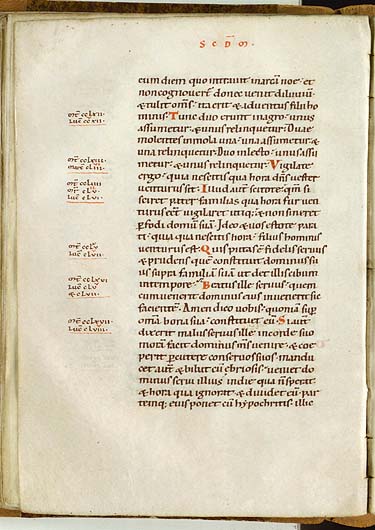 SCDM
eum diem quo intravit in arcā noe · et
non cognovert̄ donec venit diluviū
& tulit om̄s · ita erit & adventus filii ho
minis · Tunc duo erunt in agro · unus
assumetur · & unus relinquetur · Duae
molentes in mola · una assumetur · &
una relinquetur · Duo in lecto · unus assu
metur · & unus relinquetur · Vigilate
ergo · quia nescitis qua hora dn̄s vester
venturus sit · Illud autē scitote · qm̄ si
sciret pater familias qua hora fur ven
turus eēt vigilaret utiq; & non sineret
perfodi domū suā · Ideo & vos estote para
ti · quia qua nescitis hora · filius hominis
venturus est · Quis putas ē fidelis servus
& prudens · quē constituit dominus su
us supra familiā suā ut det illis cibum
in tempore · Beatus ille servus · quem
cum venerit dominus eius invenerit sic
facientē · Amen dico vobis · quoniā sup
om̄ia bona sua constituet eū · Si autē
dixerit malus servus ille in corde suo
moram facit dominus meus venire · & coe
perit percutere conservos suos · mandu
cet autē & bibat cū ebriosis · veniet do
minus servi illius in die qua n̄ sperat ·
& hora qua ignorat · & dividet eū · par
temq; eius ponet cū hypochritis · illic